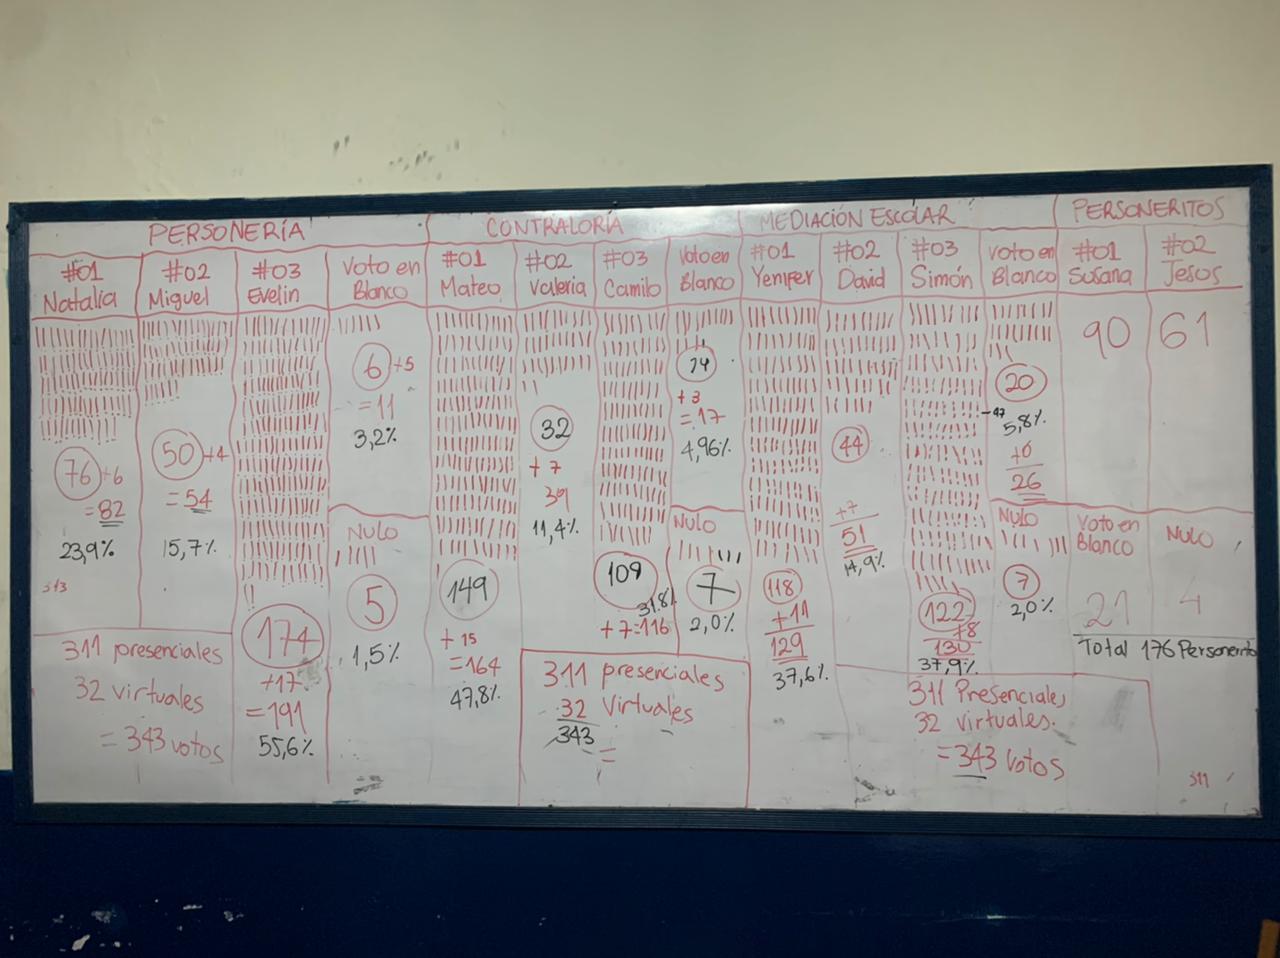 PERSONERÍA
CONTRALORÍA
MEDIACIÓN ESCOLAR
PERSONERITOS
#01
Natalia
#02
Miguel
#03
Evelin
Voto en
Blanco
#01
Mateo
#02
Valeria
#03
Camilo
Voto en
Blanco
#01
Yenifer
#02
David
#03
Simón
Voto en
Blanco
#01
Susana
#02
Jesos
76 +6
= 82
23,9%
343
50 +4
= 54
15,7%
311 presenciales
32 virtuales
= 343 votos
174
+17
=191
55,6%
6 +5
= 11
3,2%
NULO
5
1,5%
149
+ 15
= 164
47,8%
32
+ 7
39
11,4%
109
31.8%
+ 7=116
14
+ 3
= 17
4,96%
NULO
7
2,0%
311 presenciales
32 Virtuales
343
=
118
+11
129
37,6%
44
+7
51
14,9%
122
+8
130
37,9%
20
5,8%
+6
26
NULO
7
2,0%
311 Presenciales
32 virtuales.
= 343 votos
90
61
Voto en
Blanco
21
NULO
4
Total 176 Personerito
311